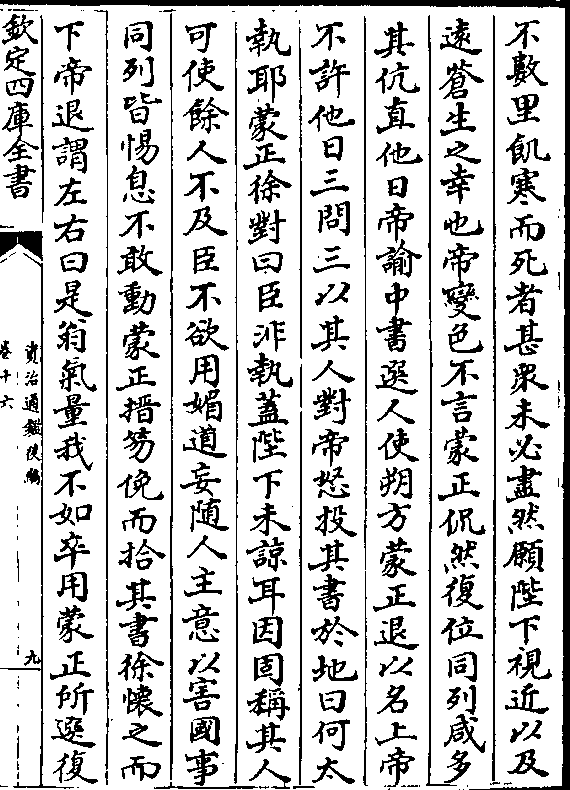 不數里飢寒而死者甚衆未必盡然願陛下視近以及
遠蒼生之幸也帝變色不言蒙正侃然復位同列咸多
其伉直他日帝諭中書選人使朔方蒙正退以名上帝
不許他日三問三以其人對帝怒投其書於地曰何太
執耶蒙正徐對曰臣非執蓋陛下未諒耳因固稱其人
可使餘人不及臣不欲用媚道妄随人主意以害國事
同列皆惕息不敢動蒙正搢笏俛而拾其書徐懐之而
下帝退謂左右曰是翁氣量我不如卒用蒙正所選復
欽定四庫全書
資治通鑑後編
卷十六
九